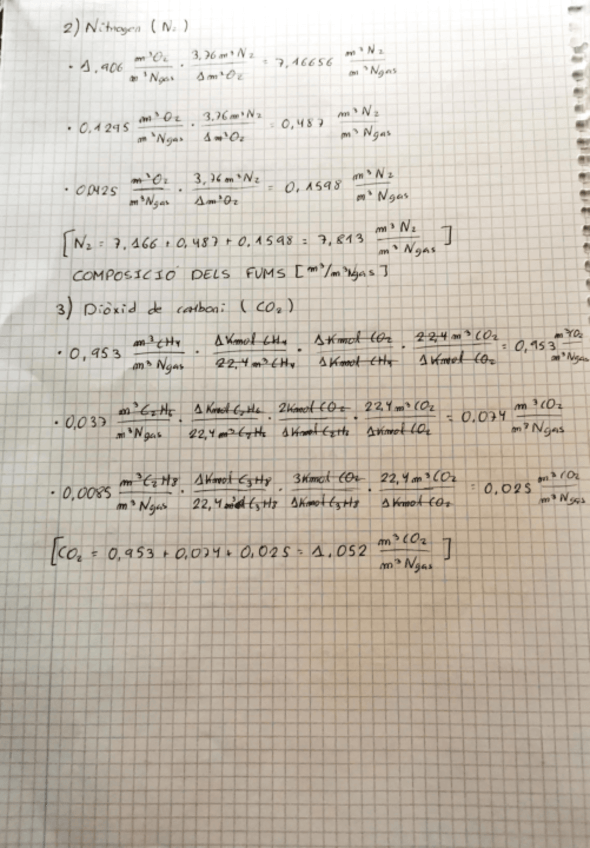 2) Nitrogen (N₂)
· 1,906 m³O₂/m³Ngas · 3,76 m³N₂/1m³O₂ = 7,16656 m³N₂/m³Ngas
· 0,1295 m³O₂/m³Ngas · 3,76 m³N₂/1m³O₂ = 0,487 m³N₂/m³Ngas
· 0,0425 m³O₂/m³Ngas · 3,76 m³N₂/1m³O₂ = 0,1598 m³N₂/m³Ngas
[N₂ = 7,166 + 0,487 + 0,1598 = 7,813 m³N₂/m³Ngas]
COMPOSICIÓ DELS FUMS [m³/m³Ngas]
3) Diòxid de carboni (CO₂)
· 0,953 m³CH₄/m³Ngas · 1Kmol CH₄/22,4 m³CH₄ · 1Kmol CO₂/1Kmol CH₄ · 22,4 m³CO₂/1Kmol CO₂ = 0,953 m³CO₂/m³Ngas
· 0,037 m³C₂H₆/m³Ngas · 1Kmol C₂H₆/22,4 m³C₂H₆ · 2Kmol CO₂/1Kmol C₂H₆ · 22,4 m³CO₂/1Kmol CO₂ = 0,074 m³CO₂/m³Ngas
· 0,0085 m³C₃H₈/m³Ngas · 1Kmol C₃H₈/22,4 m³C₃H₈ · 3Kmol CO₂/1Kmol C₃H₈ · 22,4 m³CO₂/1Kmol CO₂ = 0,025 m³CO₂/m³Ngas
[CO₂ = 0,953 + 0,074 + 0,025 = 1,052 m³CO₂/m³Ngas]